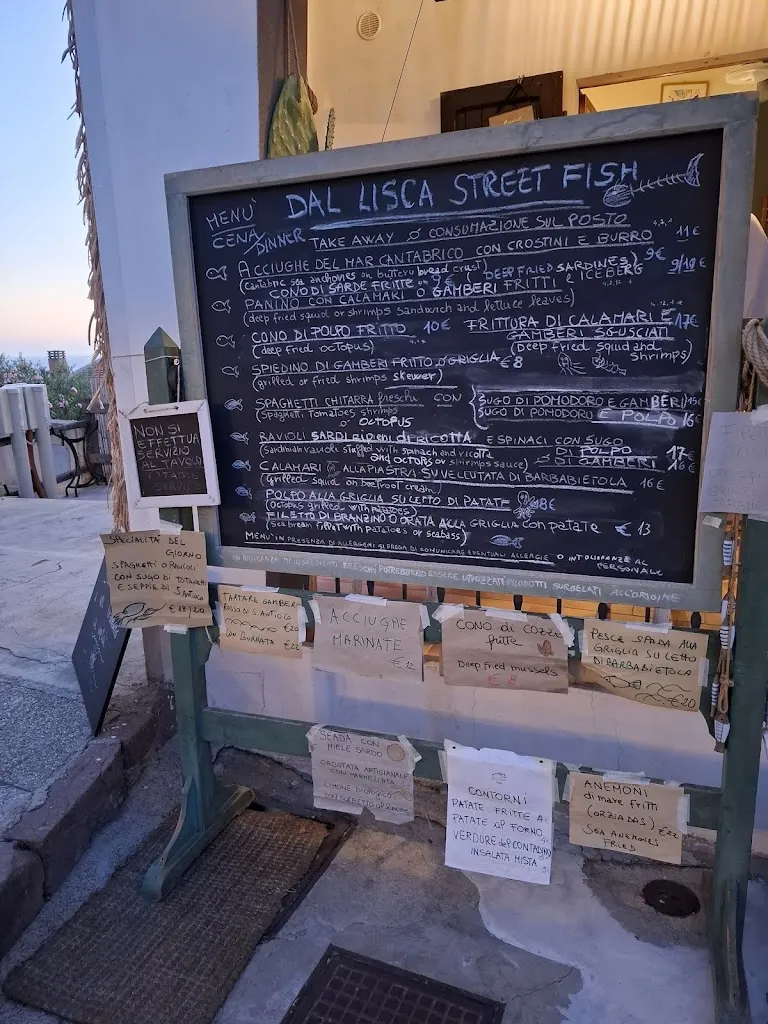 MENÙ
CENA DINNER
DAL LISCA STREET FISH
TAKE AWAY O CONSUMAZIONE SUL POSTO
ACCIUGHE DEL MAR CANTABRICO CON CROSTINI E BURRO 11€
(Cantabric sea anchovies on buttery bread crust)
CONO DI SARDE FRITTE 9€ (DEEP FRIED SARDINES) 9€
PANINO CON CALAMARI O GAMBERI FRITTI & ICEBERG 9/10€
(deep fried squid or shrimps sandwich and lettuce leaves)
CONO DI POLPO FRITTO 10€
(deep fried octopus)
FRITTURA DI CALAMARI E GAMBERI SGUSCIATI 17€
(Deep fried squid and shrimps)
SPIEDINO DI GAMBERI FRITTO O GRIGLIA €8
(grilled or fried shrimps skewer)
SPAGHETTI CHITARRA freschi CON
SUGO DI POMODORO E GAMBERI 15€
SUGO DI POMODORO E POLPO 16€
(Spaghetti tomatoes shrimps
o OCTOPUS
RAVIOLI SARDI RIPIENI DI RICOTTA E SPINACI CON SUGO
DI POLPO 17€
DI GAMBERI 16€
(Sardinian ravioli stuffed with spinach and ricotta
and octopus or shrimps sauce)
CALAMARI ALLA PIASTRA SU VELLUTATA DI BARBABIETOLA 16€
(grilled squid on beetroot cream)
POLPO ALLA GRIGLIA SU LETTO DI PATATE 18€
(Octopus grilled with potatoes)
FILETTO DI BRANZINO O ORATA ALLA GRIGLIA con patate €13
(Sea bream fillet with potatoes or seabass)
MENU' IN PRESENZA DI ALLERGENI SI PREGA DI COMUNICARE EVENTUALI ALLERGIE O INTOLLERANZE AL
PERSONALE
IN MANCANZA DI INGREDIENTI FRESCHI POTREBBERO ESSERE UTILIZZATI PRODOTTI SURGELATI ALL'ORIGINE
NON SI
EFFETTUA
SERVIZIO
AL TAVOLO
SPECIALITÀ DEL
GIORNO
SPAGHETTI O RAVIOLI
CON SUGO DI TOTANI
E SEPPIE DI S.ANTIOCO
€ 18/20
TARTARE GAMBERO
ROSSO DI S.ANTIOCO
€20
CON BURRATA €22
ACCIUGHE
MARINATE
€12
CONO di COZZE
fritte
Deep fried mussels
€8
PESCE SPADA ALLA
GRIGLIA SU LETTO
DI BARBABIETOLA
€20
SEADA CON
MIELE SARDO
CROSTATA ARTIGIANALE
CON MARMELLATA
LIMONE biologico
CON SORBETTO al limone
CONTORNI
PATATE FRITTE
PATATE AL FORNO
VERDURE del CONTADINO
INSALATA MISTA
ANEMONI
di mare fritti
(ORZIADAS)
€22
SEA ANEMONES
FRIED